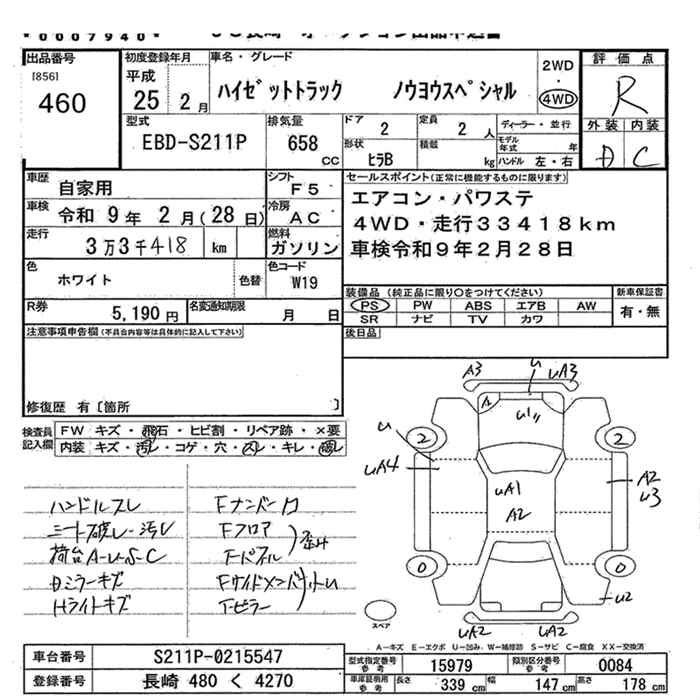 *0007940*
出品番号
[856]
460
初度登録年月
平成
25 2月
車名・グレード
ハイゼットトラック ノウヨウスペシャル
2WD
・
4WD
評価点
R
外装 内装
D C
型式
EBD-S211P
排気量
658
CC
ドア
2
定員
2 人
形状
ヒラB
積載
kg
ディーラー・並行
モデル年式 年
ハンドル 左・右
車歴
自家用
シフト
F5
車検
令和 9年 2月(28日)
冷房
AC
走行
3万3千418 km
燃料
ガソリン
色
ホワイト
色替
色コード
W19
R券
5,190円
名変通知期限
月 日
セールスポイント(正常に機能するものに限ります)
エアコン・パワステ
4WD・走行33418km
車検令和9年2月28日
装備品 (純正品に限り〇をつけてください)
新車保証書
PS PW ABS エアB AW
SR ナビ TV カワ
有・無
後日品
注意事項申告欄(不具合内容等は具体的に記入して下さい)
修復歴 有〔箇所 〕
検査員記入欄
FW キズ・飛石・ヒビ割・リペア跡・×要
内装 キズ・汚レ・コゲ・穴・スレ・キレ・破レ
ハンドルスレ
シート破レ・汚レ
荷台A-U-S-C
Dミラーキズ
Hライトキズ
Fナンバー凹
Fフロア
歪み
A3 U UA3
A U1
U 2 2
UA4 UA1 A2
A2 U3
0 0
U2
UA2 UA2
スペア
A-キズ E-エクボ U-凹み W-補修跡 S-サビ C-腐食 XX-交換済
車台番号
S211P-0215547
登録番号
長崎 480 く 4270
型式指定番号
参考
15979
類別区分番号
参考
0084
車庫証明用
参考
長さ 339 cm
幅 147 cm
高さ 178 cm